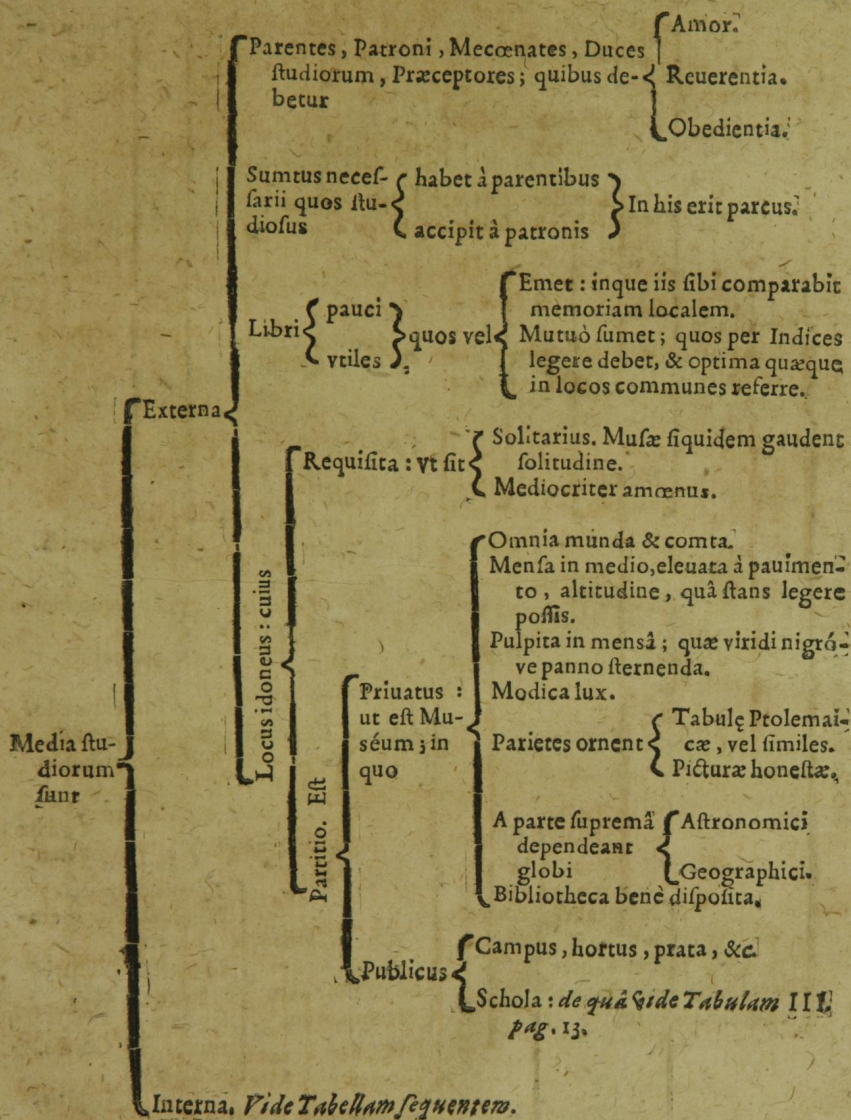 Parentes, Patroni, Mecœnates, Duces
ſtudiorum, Præceptores; quibus de-
betur
Amor.
Reuerentia.
Obedientia.
Sumtus neceſ-
ſarii quos ſtu-
dioſus
habet à parentibus
accipit à patronis
In his erit parcus.
Libri
pauci
vtiles
quos vel
Emet: inque iis ſibi comparabit
memoriam localem.
Mutuò ſumet; quos per Indices
legere debet, & optima quæque
in locos communes referre.
Externa
Requiſita: vt ſit
Solitarius. Muſæ ſiquidem gaudent
ſolitudine.
Mediocriter amœnus.
Locus idoneus: cuius
Partitio. Eſt
Priuatus:
ut eſt Mu-
séum; in
quo
Omnia munda & comta.
Menſa in medio, eleuata à pauimen-
to, altitudine, quâ ſtans legere
poſſis.
Pulpita in mensâ; quæ viridi nigró-
ve panno ſternenda.
Modica lux.
Parietes ornent
Tabulę Ptolemai-
cæ, vel ſimiles.
Picturæ honeſtæ.
A parte ſupremâ
dependeant
globi
Aſtronomici
Geographici.
Bibliotheca benè diſpoſita.
Publicus
Campus, hortus, prata, &c.
Schola: de quâ vide Tabulam III.
pag. 13.
Media ſtu-
diorum
ſunt
Interna. Vide Tabellam ſequentem.